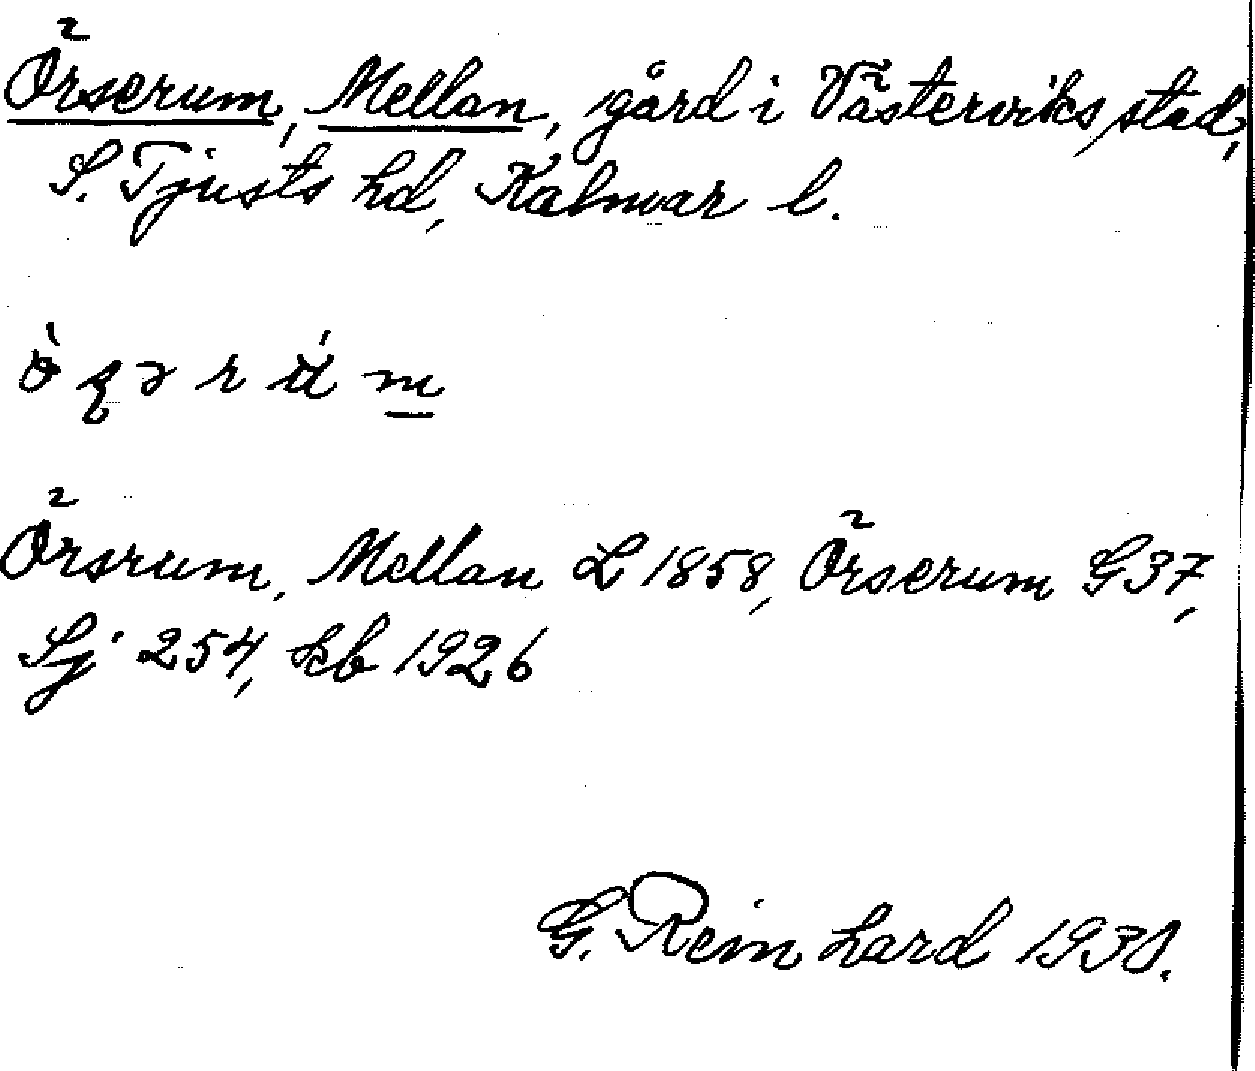 Örserum, Mellan, gård i Västerviks stad,
S. Tjusts hd, Kalmar l.
Örsrum, Mellan L 1858, Örserum G 37,
Sj 254, kb 1926
G. Reinhard 1930.